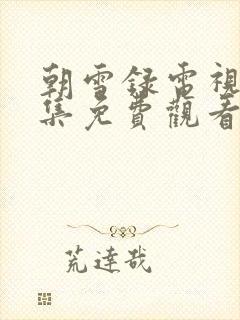 朝雪録電視
集免費觀看
荒達哉